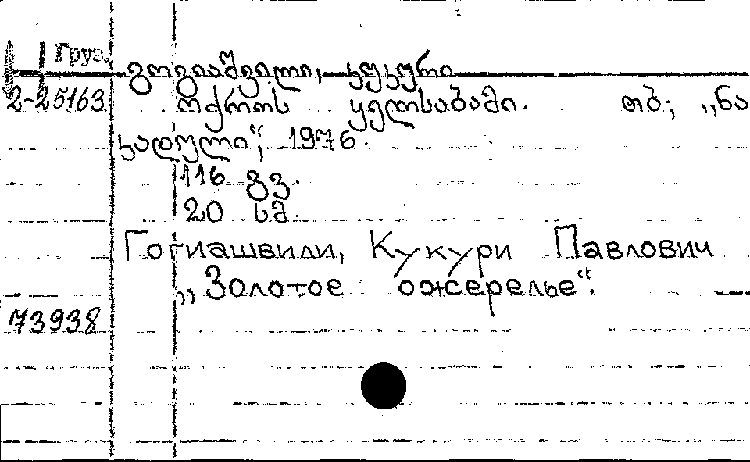 Груз.
გოგიაშვილი, კუკური
2-25163 ოქროს ყელსაბამი. თბ., „ნა
კადული“, 1976.
116 გვ.
20 სმ.
Гогиашвили, Кукури Павлович
„Золотое ожерелье“.
73938